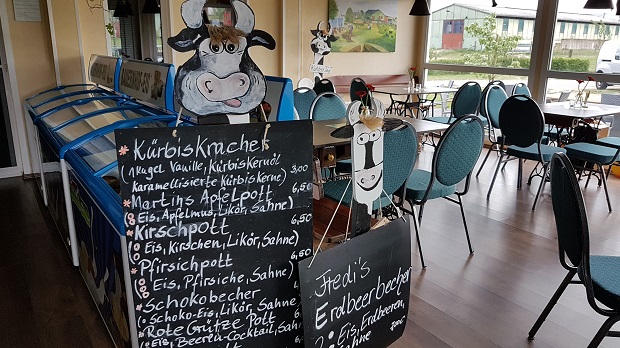 Kürbiskracher
(1 Kugel Vanille, Kürbiskernöl
Karamellisierte Kürbiskerne) 3,00
Martins Apfelpott 6,50
(Eis, Apfelmus, Likör, Sahne)
Kirschpott 6,50
(Eis, Kirschen, Likör, Sahne)
Pfirsichpott 6,50
(Eis, Pfirsiche, Sahne)
Schokobecher 6,50
(Schoko-Eis, Likör, Sahne
Rote Grütze Pott
(Eis, Beeren-Cocktail, Sahne,
Hedi's
Erdbeerbecher
Eis, Erdbeeren,
Sahne